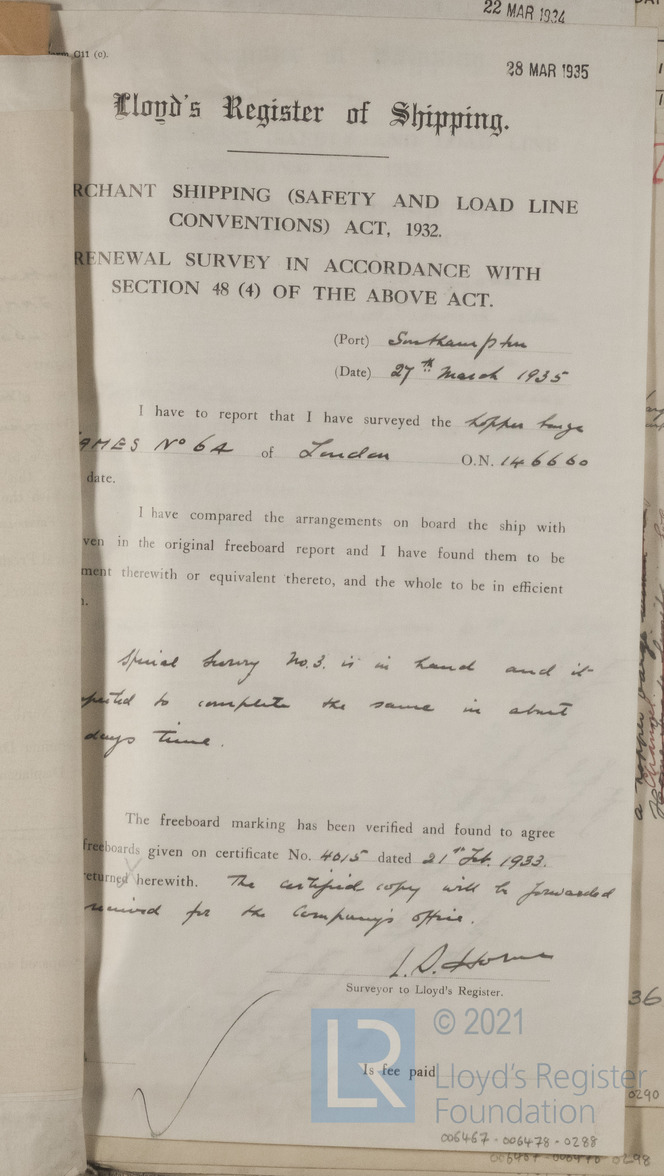 22 MAR 1934
Form C11 (c).
28 MAR 1935
Lloyd's Register of Shipping.
RCHANT SHIPPING (SAFETY AND LOAD LINE
CONVENTIONS) ACT, 1932.
RENEWAL SURVEY IN ACCORDANCE WITH
SECTION 48 (4) OF THE ABOVE ACT.
(Port) Southampton
(Date) 27th March 1935
I have to report that I have surveyed the hopper barge
AMES No 6A of London O.N. 146660
date.
I have compared the arrangements on board the ship with
ven in the original freeboard report and I have found them to be
ment therewith or equivalent thereto, and the whole to be in efficient
n.
Special Survey No. 3. is in hand and it
pected to complete the same in about
days time.
The freeboard marking has been verified and found to agree
freeboards given on certificate No. 4015 dated 21st Feb. 1933.
returned herewith. The certified copy will be forwarded
received for the Company's office.
Surveyor to Lloyd's Register.
Is fee paid
© 2021
LR
Lloyd's Register
Foundation
36
0290
006467-006478-0288
0298